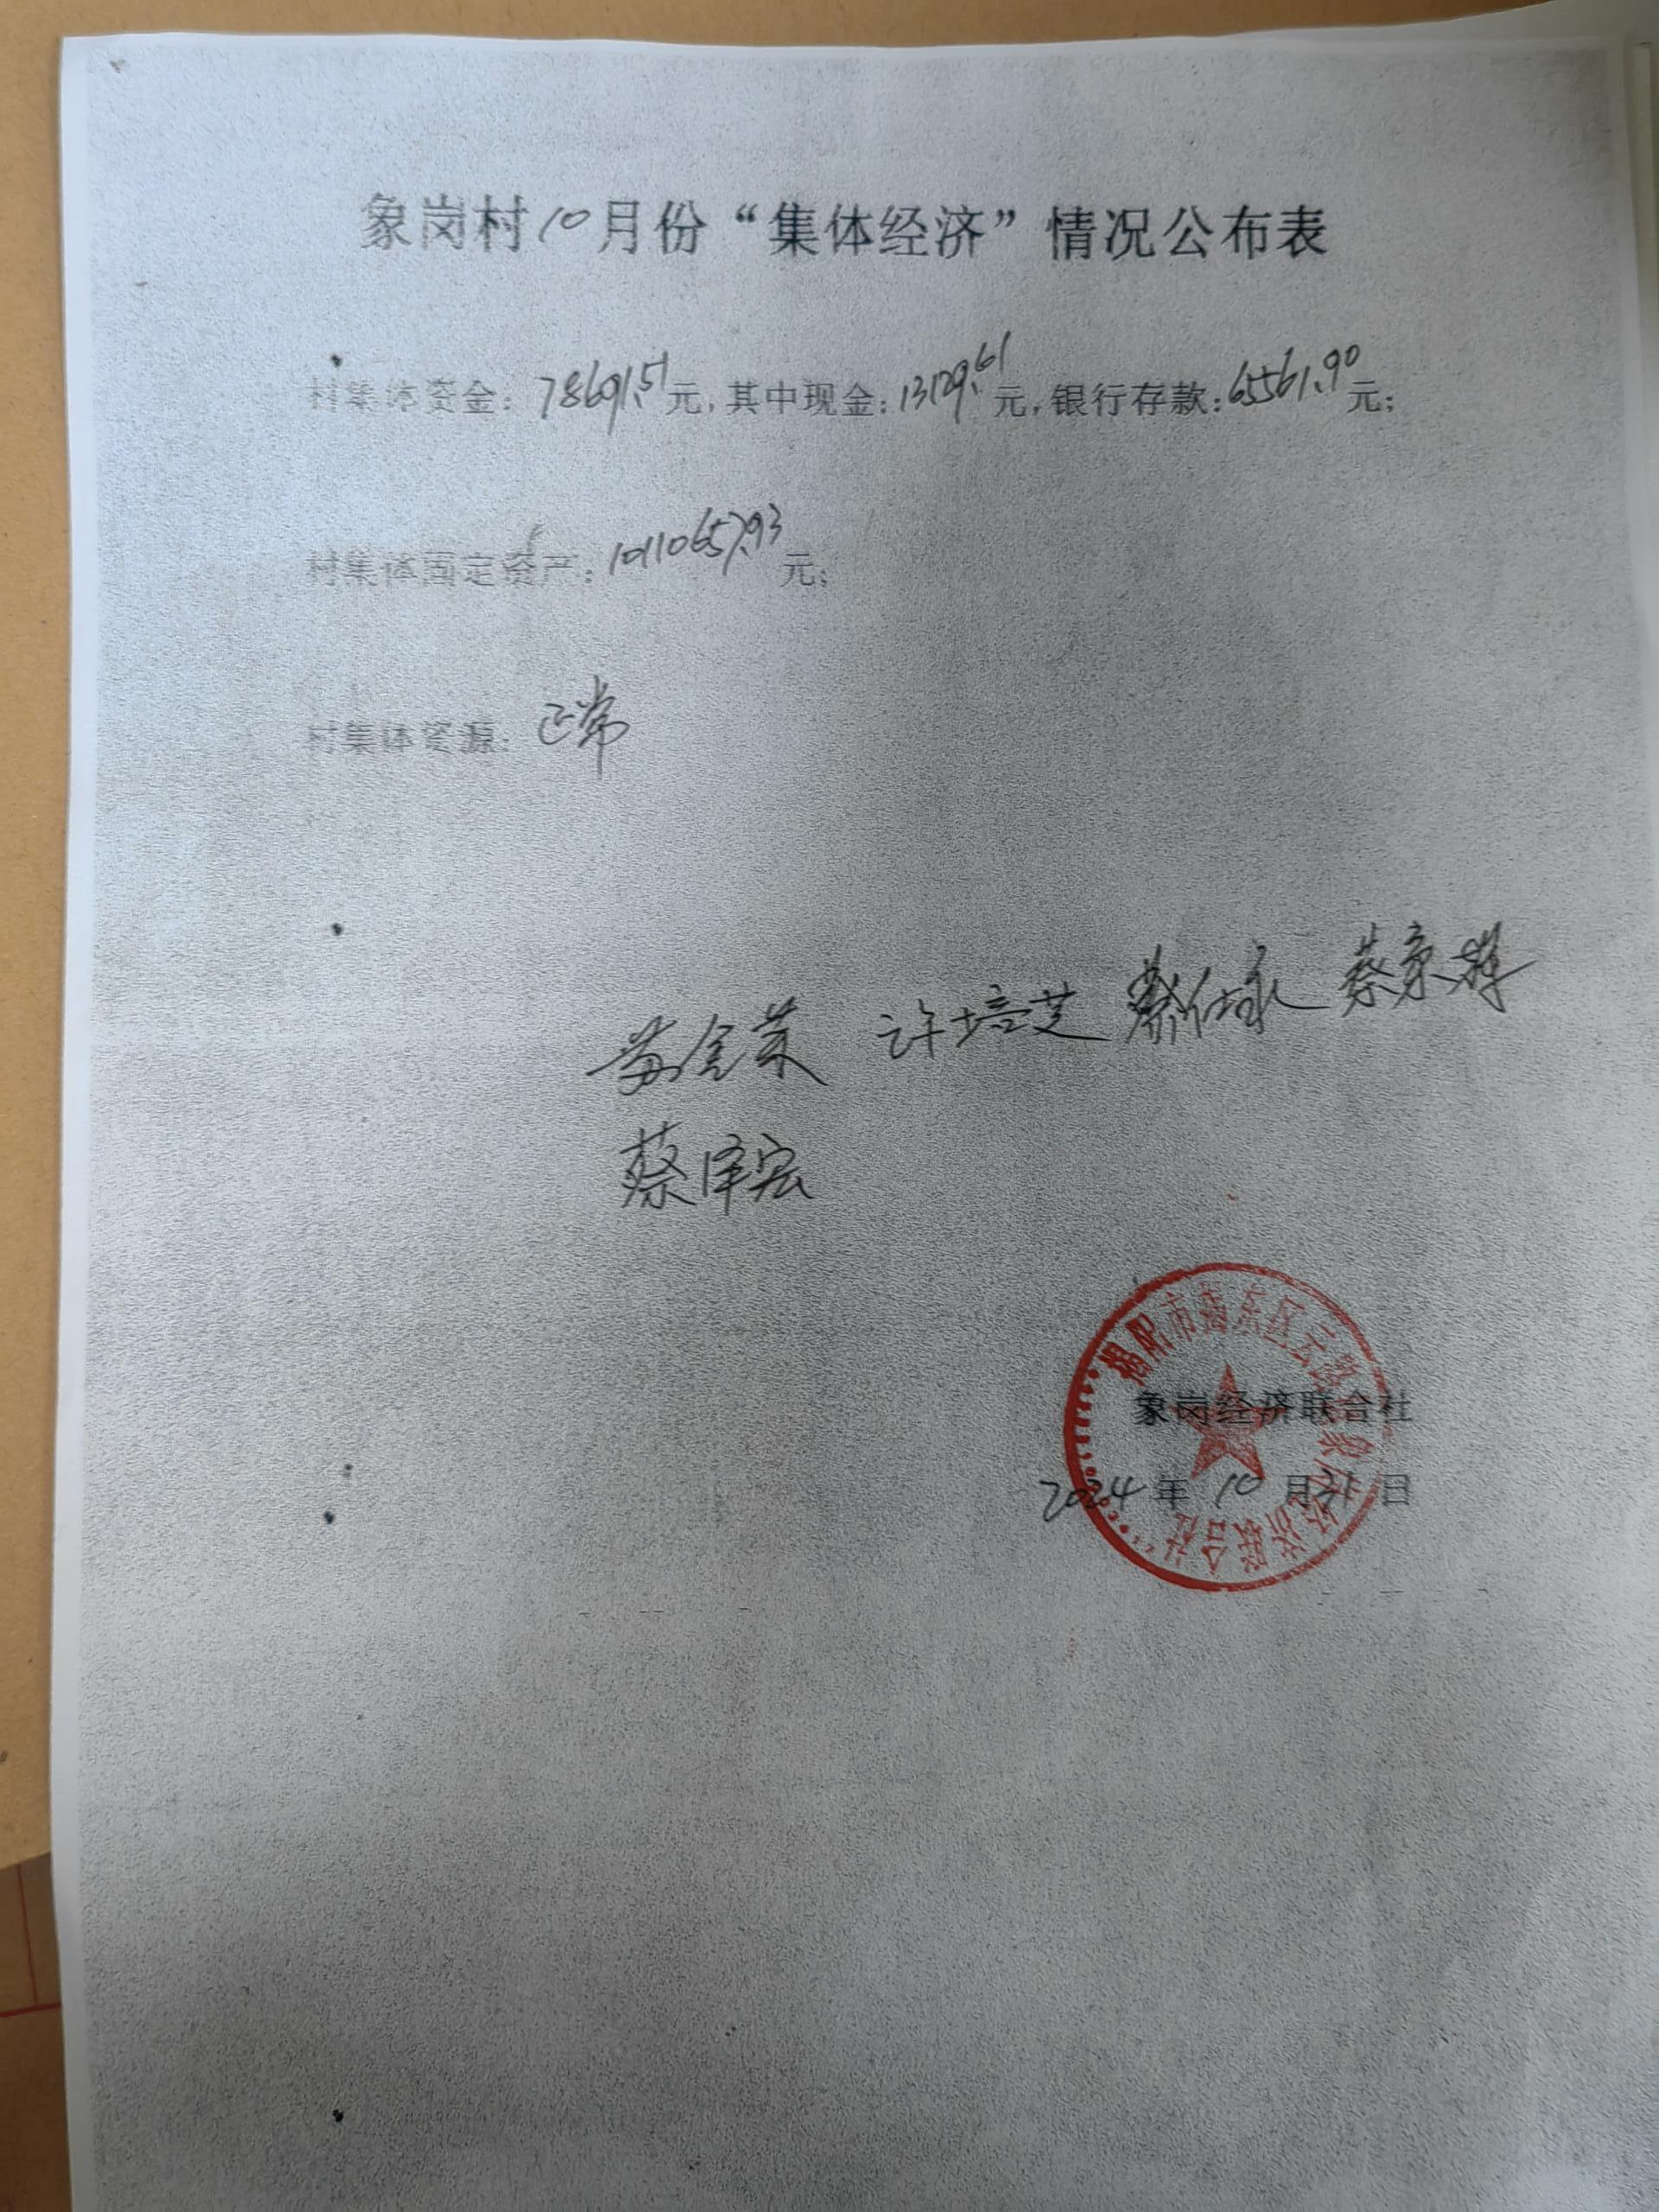 象岗村10月份“集体经济”情况公布表
村集体资金：78691.51元，其中现金：13129.61元，银行存款：65561.90元；
村集体固定资产：1011065793元；
村集体资源：正常
黄金荣 许培芝 蔡仕永 蔡京辉
蔡泽宏
揭阳市揭东区云路镇象岗经济联合社
象岗经济联合社
2024年10月31日